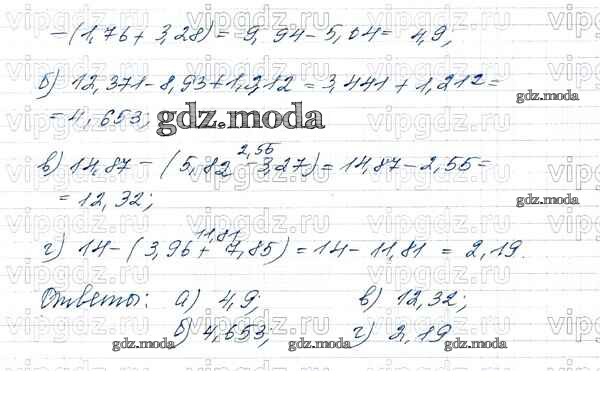 - (1,76 + 3,28) = 9,94 - 5,04 = 4,9;
б) 12,371 - 8,93 + 1,212 = 3,441 + 1,212 =
= 4,653;
gdz.moda
gdz.moda
2,55
в) 14,87 - (5,82 - 3,27) = 14,87 - 2,55 =
= 12,32;
gdz.moda
11,81
г) 14 - (3,96 + 7,85) = 14 - 11,81 = 2,19.
Ответы: а) 4,9; в) 12,32;
б) 4,653; г) 2,19
gdz.moda gdz.moda gdz.moda
vipgdz.ru